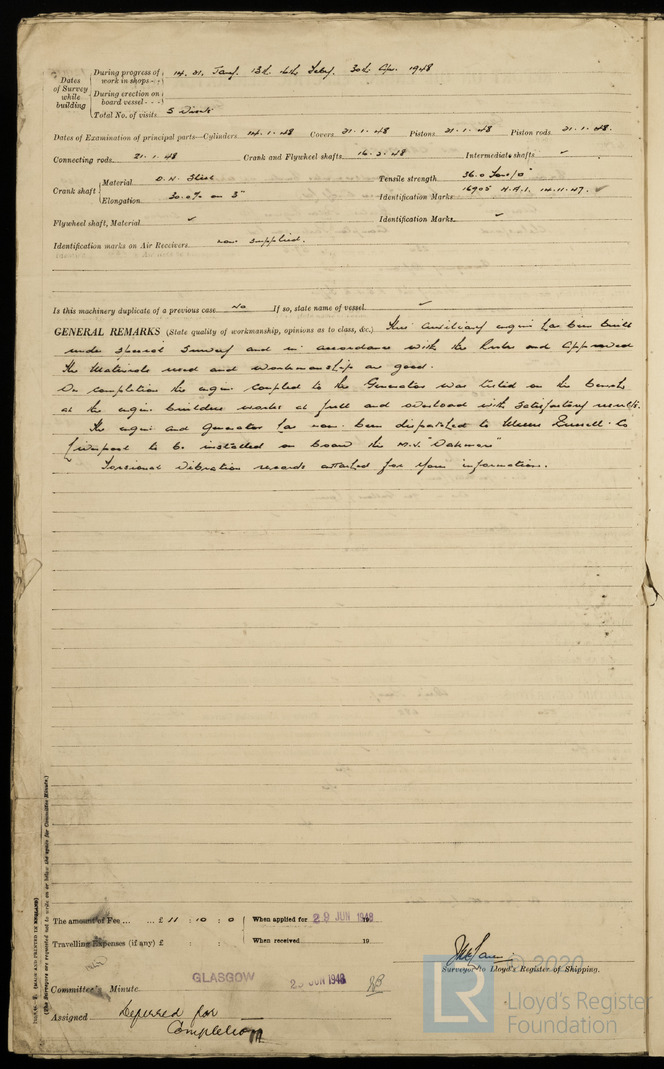 Dates of Survey while building
During progress of work in shops - - 14. 21. Jany. 13th. 16th Feby. 30th Apr. 1948
During erection on board vessel - - -
Total No. of visits 5 Visits
Dates of Examination of principal parts—Cylinders 14.1.48 Covers 21.1.48 Pistons 21.1.48 Piston rods 21.1.48.
Connecting rods 21.1.48 Crank and Flywheel shafts 16.2.48 Intermediate shafts ✓
Crank shaft Material O.H. Steel Tensile strength 36.0 Tons/□"
Elongation 30.0% on 3" Identification Marks 16905 H.A.I. 14.11.47. ✓
Flywheel shaft, Material ✓ Identification Marks ✓
Identification marks on Air Receivers none supplied.
Is this machinery duplicate of a previous case No If so, state name of vessel ✓
GENERAL REMARKS (State quality of workmanship, opinions as to class, &c.) This Auxiliary engine has been built
under special survey and in accordance with the Rules and Approved
The Materials used and workmanship are good.
On completion the engine coupled to the Generator was tested on the bench
at the engine builders works at full and overload with satisfactory results.
The engine and generator has now been dispatched to Messrs Russell Co
Liverpool to be installed on board the M.V. "Oakmore"
Torsional Vibration records attached for your information.
(The Surveyors are requested not to write on or below the space for Committee's Minute.)
(MADE AND PRINTED IN ENGLAND)
The amount of Fee ... ... £ 11 : 10 : 0 When applied for 29 JUN 1948 19
Travelling Expenses (if any) £ : : When received 19
Surveyor to Lloyd's Register of Shipping.
Committee's Minute GLASGOW 29 JUN 1948
Assigned Deferred for
Completion
© 2020
LR
Lloyd's Register
Foundation